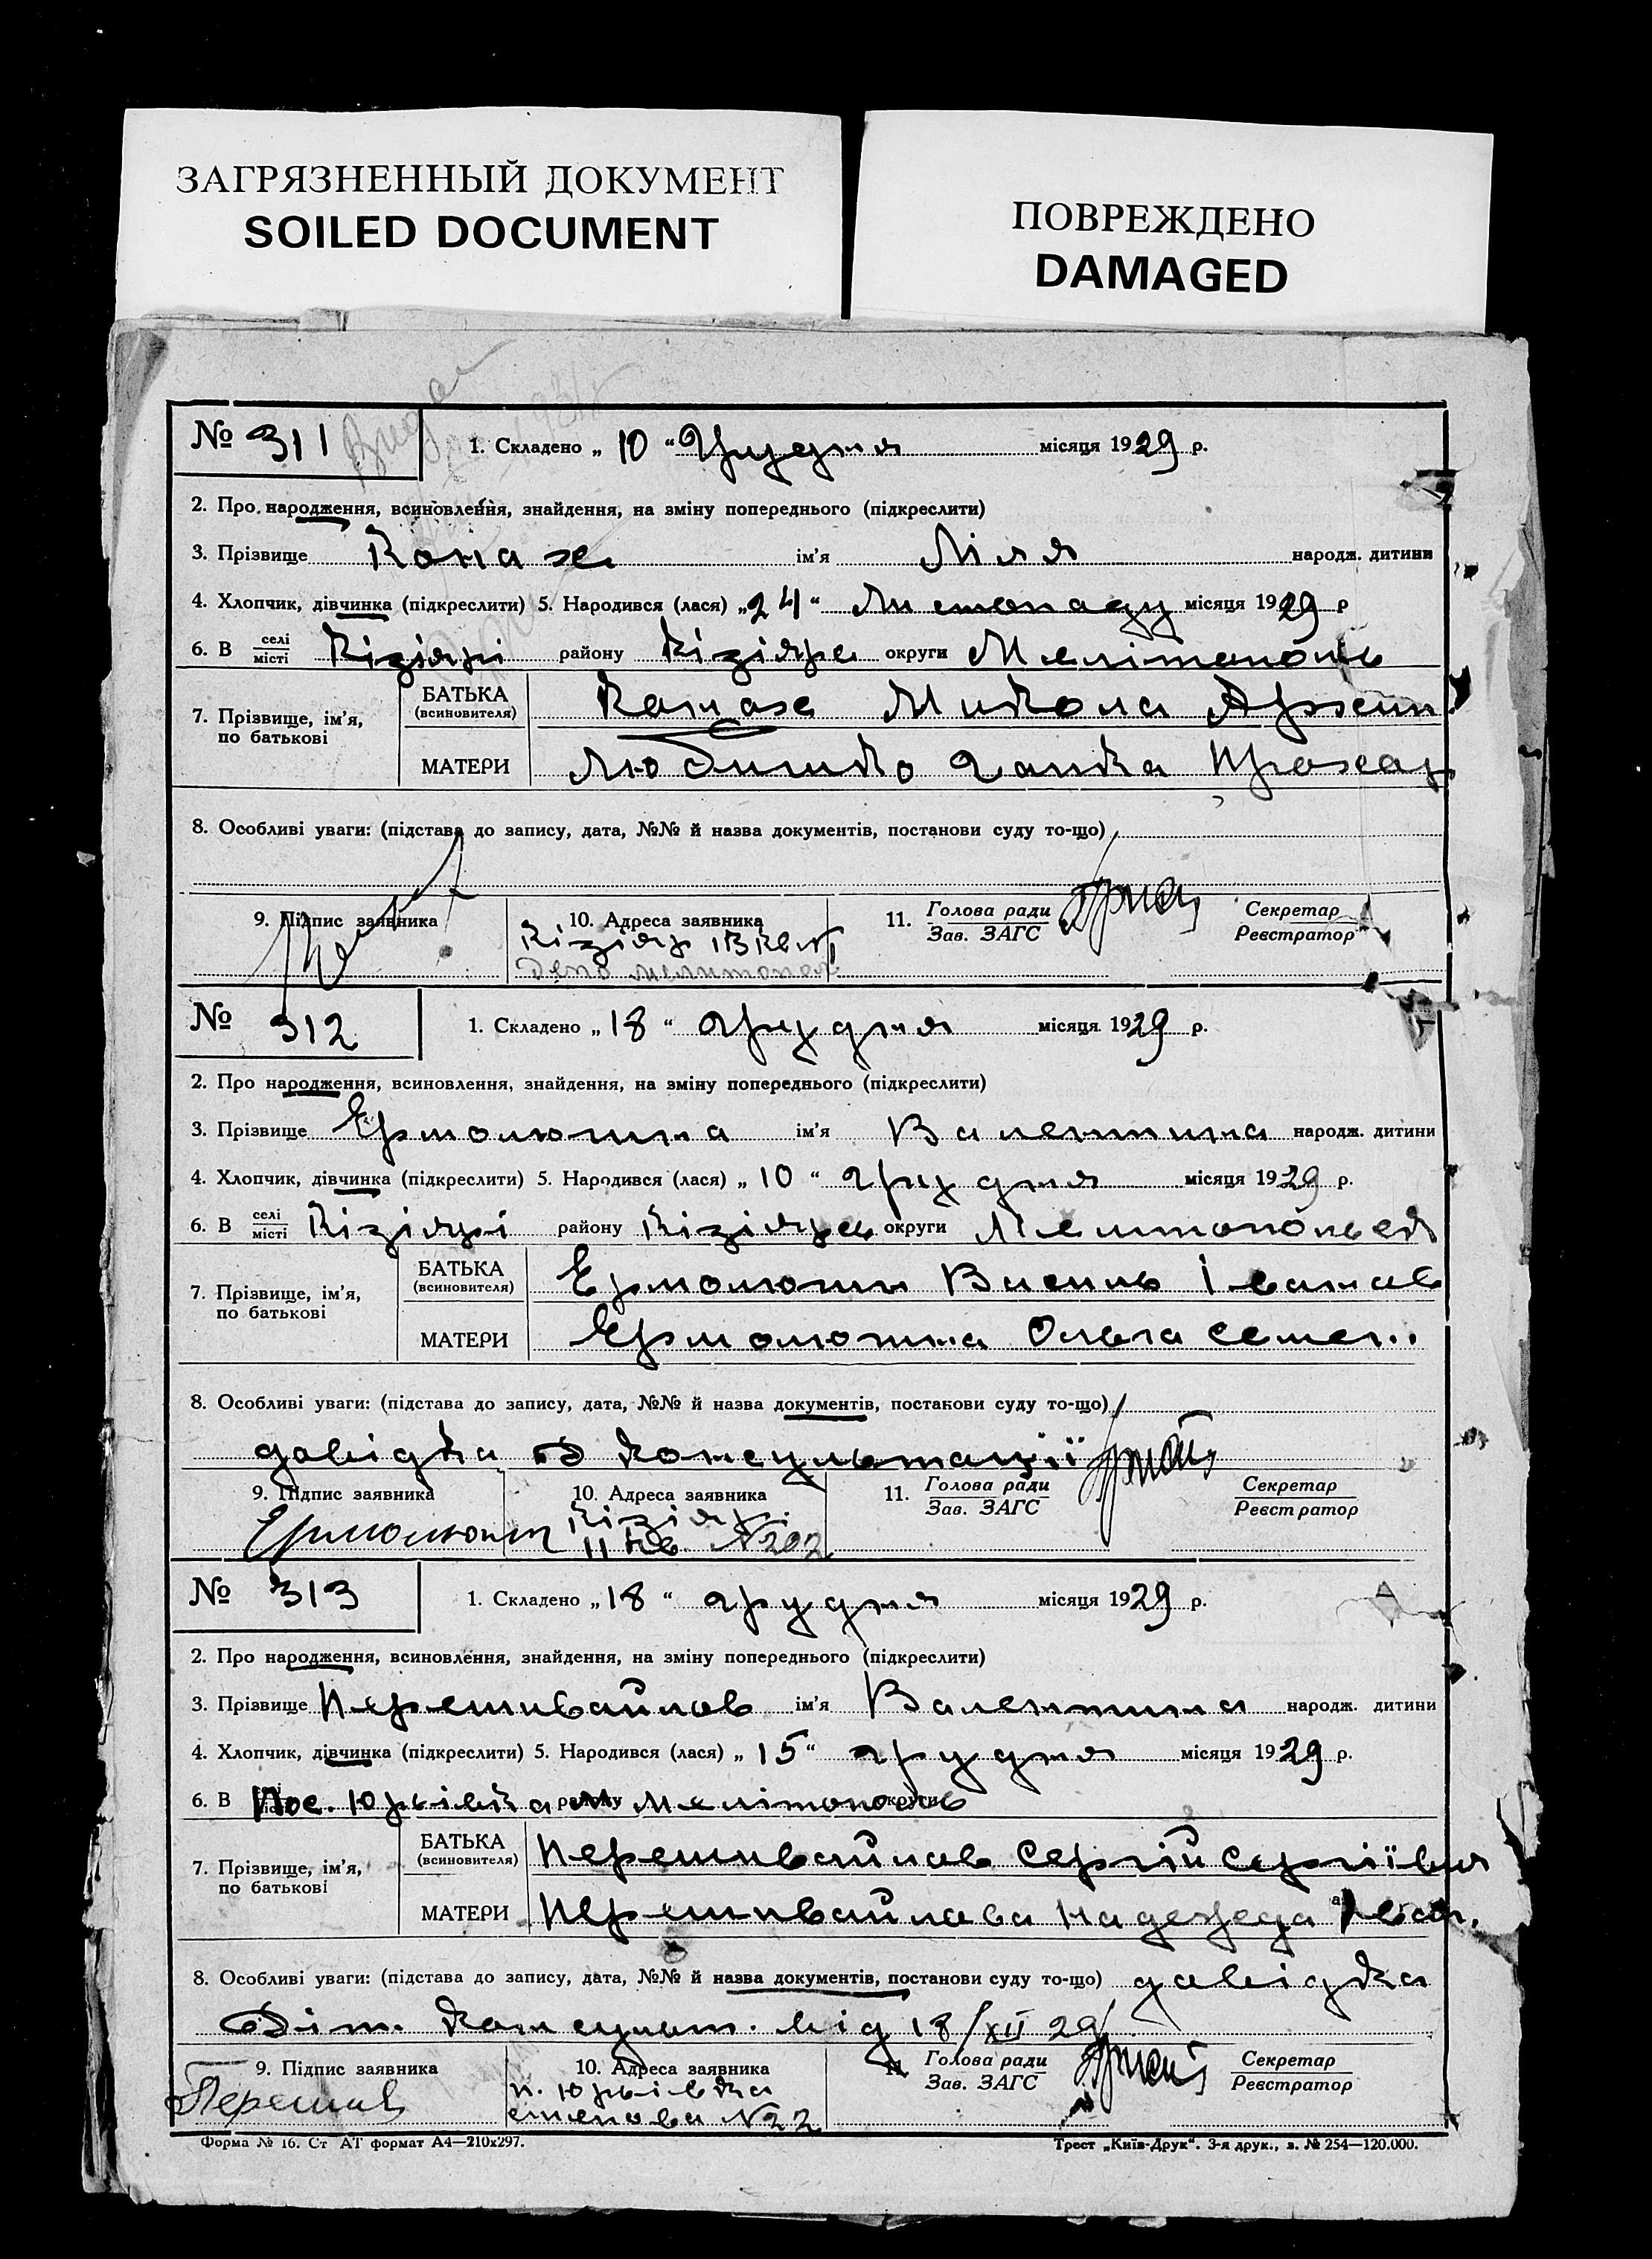 ЗАГРЯЗНЕННЫЙ ДОКУМЕНТ
SOILED DOCUMENT
ПОВРЕЖДЕНО
DAMAGED
№ 311 1. Складено „ 10 “ Грудня місяця 1929 р.
2. Про народження, всиновлення, знайдення, на зміну попереднього (підкреслити)
3. Прізвище ім'я Ліля народж. дитини
4. Хлопчик, дівчинка (підкреслити) 5. Народився (лася) „24“ Листопаду місяця 1929 р
6. В селі/місті Кізіярі району Кізіяре округи Мелітополь
7. Прізвище, ім'я, по батькові
БАТЬКА (всиновителя) Микола
МАТЕРИ Ганка
8. Особливі уваги: (підстава до запису, дата, №№ й назва документів, постанови суду то-що)
9. Підпис заявника 10. Адреса заявника 11. Голова ради Секретар
Зав. ЗАГС Реєстратор
Кізіяр
Депо
№ 312 1. Складено „ 18 “ грудня місяця 1929 р.
2. Про народження, всиновлення, знайдення, на зміну попереднього (підкреслити)
3. Прізвище Ермолюшина ім'я Валентина народж. дитини
4. Хлопчик, дівчинка (підкреслити) 5. Народився (лася) „ 10 “ грудня місяця 1929 р.
6. В селі/місті Кізіярі району Кізіярев округи
7. Прізвище, ім'я, по батькові
БАТЬКА (всиновителя) Ермолюшин Василь Іванов
МАТЕРИ Ермолюшина Ольга Семен..
8. Особливі уваги: (підстава до запису, дата, №№ й назва документів, постанови суду то-що)
довідка з консультації
9. Підпис заявника 10. Адреса заявника 11. Голова ради Секретар
Зав. ЗАГС Реєстратор
Ермолюшин Кізіяр.
II кв. №202
№ 313 1. Складено „ 18 “ грудня місяця 1929 р.
2. Про народження, всиновлення, знайдення, на зміну попереднього (підкреслити)
3. Прізвище Перешивайлов ім'я Валентина народж. дитини
4. Хлопчик, дівчинка (підкреслити) 5. Народився (лася) „ 15 “ грудня місяця 1929 р.
6. В Пос. Юрьівка м Мелітополь
7. Прізвище, ім'я, по батькові
БАТЬКА (всиновителя) Перешивайлов Сергій Сергіївич
МАТЕРИ Перешивайлова Надежда Іван.
8. Особливі уваги: (підстава до запису, дата, №№ й назва документів, постанови суду то-що) довідка
Діт. консульт. від 18/XII 29
9. Підпис заявника 10. Адреса заявника Голова ради Секретар
Зав. ЗАГС Реєстратор
п. Юрьівка
степова №22
Форма № 16. Ст АТ формат А4—210х297.
Трест „Київ-Друк“. 3-я друк., з. № 254—120.000.